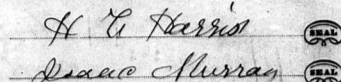 H G Harris SEAL
Isaac Murray SEAL